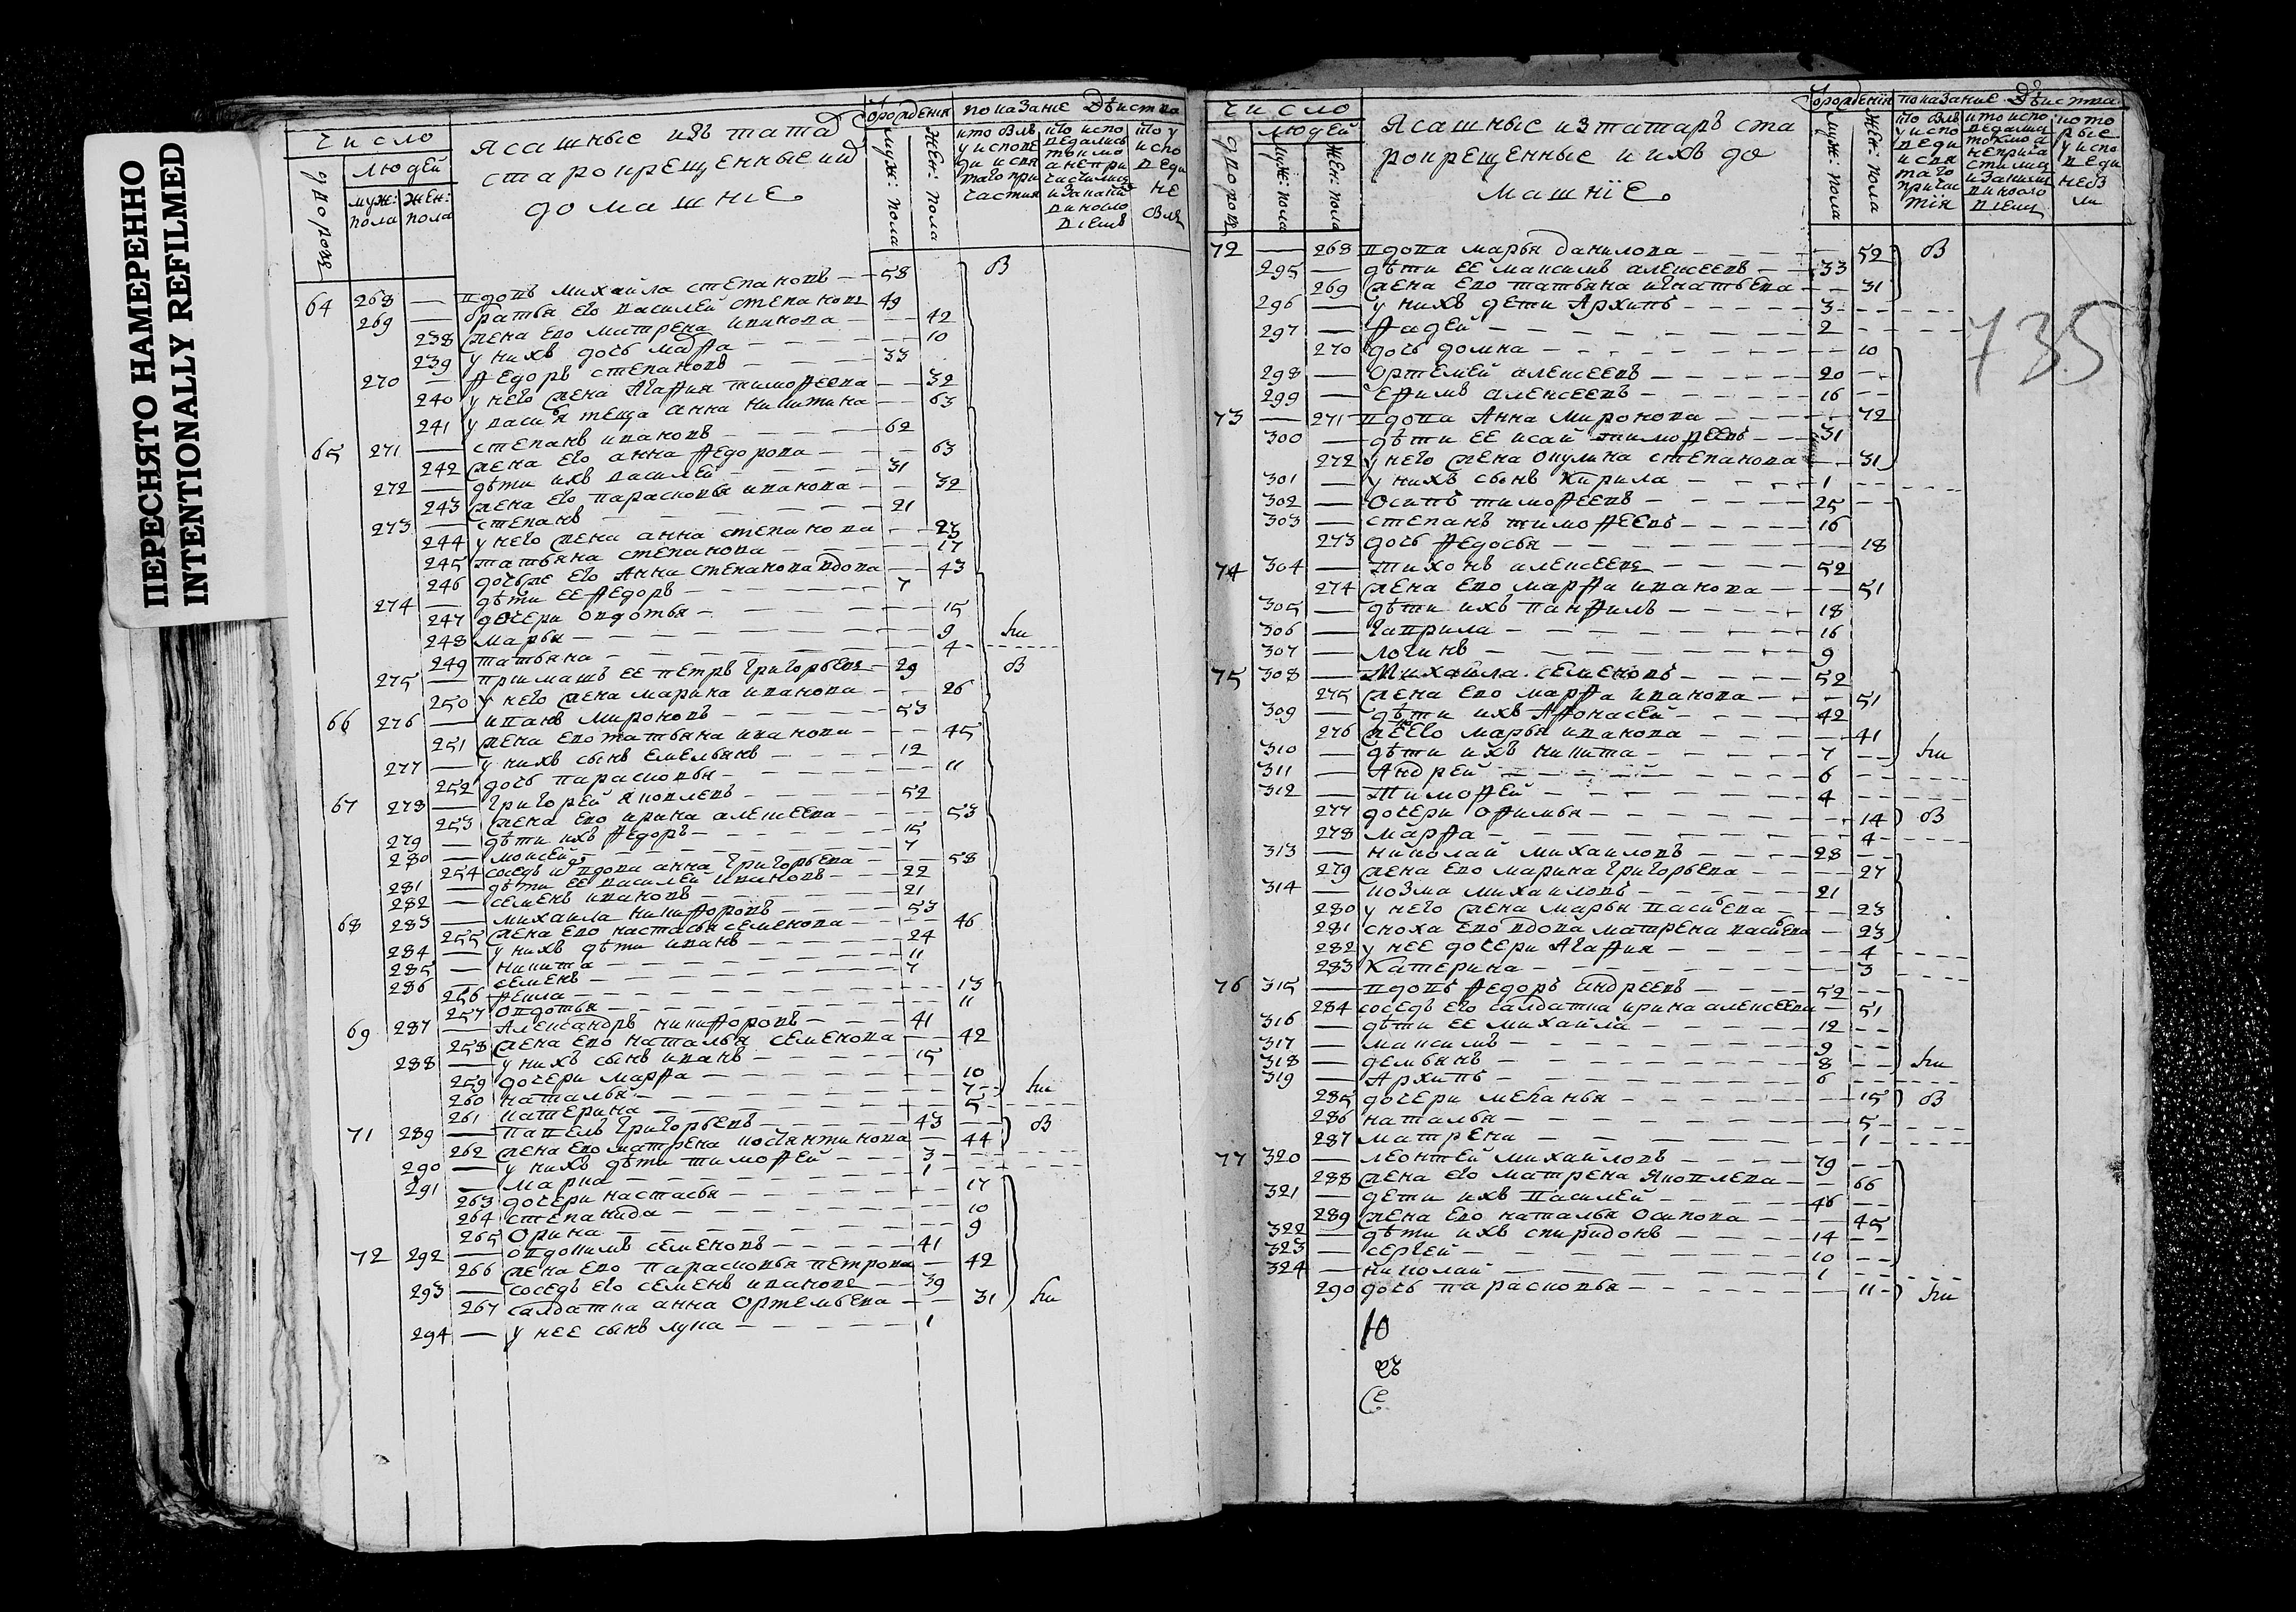 ПЕРЕСНЯТО НАМЕРЕННО
INTENTIONALLY REFILMED
число
людей
дворовъ
муж: пола
жен: пола
Ясашные изъ татаръ
старокрещенные и их
домашніе
от рожденія
муж: пола
жен: пола
показаніе действа
64 268 — вдовъ михайла степановъ — 58
269 — братья его василей степановъ 49
238 жена ево матрена иванова — 42
239 у нихъ дочь марфа — 10
270 — федоръ степановъ — 33
240 у него жена Агафия тимофеева — 32
241 у васья теща анна никитина — 63
65 271 — степанъ ивановъ — 62
242 жена его анна федорова — 63
272 — дѣти ихъ василей — 31
243 жена его парасковья иванова — 32
273 — степанъ — 21
244 у него жена анна степанова — 23
245 татьяна степанова — 17
246 дочь же его Анна степанова вдова — 43
274 — дѣти ее федоръ — 7
247 дочери овдотья — 15
248 марья — 9
249 татьяна — 4
275 — примашъ ее петръ григорьевъ — 29
250 у него жена марина иванова — 26
66 276 — иванъ мироновъ — 53
251 жена ево татьяна иванова — 45
277 — у нихъ сынъ емельянъ — 12
252 дочь парасковья — 11
67 278 — григорей яковлевъ — 52
253 жена ево ирина алексеева — 53
279 — дѣти ихъ федоръ — 15
280 — моисей — 7
254 соседъ и вдова анна григорьева — 58
281 — дѣти ее василей ивановъ — 22
282 — семенъ ивановъ — 21
68 283 — михаила никифоровъ — 53
255 жена ево настасья семенова — 46
284 — у нихъ дѣти иванъ — 24
285 — никита — 11
286 — семенъ — 7
256 фекла — 13
257 овдотья — 11
69 287 — Александръ никифоровъ — 41
258 жена ево наталья семенова — 42
288 — у нихъ сынъ иванъ — 15
259 дочери марфа — 10
260 наталья — 7
261 катерина — 5
71 289 — павелъ григорьевъ — 43
262 жена ево матрена костянтинова — 44
290 — у нихъ дѣти тимофей — 3
291 — марка — 1
263 дочери настасья — 17
264 степанида — 10
265 Орина — 9
72 292 — овдокимъ семеновъ — 41
266 жена ево парасковья петрова — 42
293 — соседъ его семенъ ивановъ — 39
267 салдатка анна Ортемьева — 31
294 — у нее сынъ лука — 1
число
людей
дворовъ
муж: пола
жен: пола
Ясашные изъ татаръ ста
рокрещенные и ихъ до
машніе
от рожденія
муж: пола
жен: пола
показаніе действа
735
72 — 268 вдова марья данилова — 52
295 — дѣти ее максимъ алексеевъ — 33
269 жена ево татьяна игнатьева — 31
296 — у нихъ дети Архипъ — 3
297 — фадей — 2
270 дочь домна — 10
298 — Ортемей алексеевъ — 20
299 — Ефимъ алексеевъ — 16
73 — 271 вдова Анна миронова — 72
300 — дѣти ее исай тимофеевъ — 31
272 у него жена Окулина степанова — 31
301 — у нихъ сынъ Кирила — 1
302 — Осипъ тимофеевъ — 25
303 — степанъ тимофеевъ — 16
273 дочь федосья — 18
74 304 — тихонъ алексеевъ — 52
274 жена ево марфа иванова — 51
305 — дѣти ихъ панфилъ — 18
306 — гаврила — 16
307 — логинъ — 9
75 308 — Михайла семеновъ — 52
275 жена ево марфа иванова — 51
309 — дѣти ихъ Афонасей — 42
276 жена его марья иванова — 41
310 — дѣти ихъ никита — 7
311 — Андрей — 6
312 — Тимофей — 4
277 дочери офимья — 14
278 марфа — 4
313 — николай михаиловъ — 28
279 жена ево марина григорьева — 27
314 — козма михаиловъ — 21
280 у него жена марья васиева — 23
281 сноха ево вдова матрена васиева — 23
282 у нее дочери Агафия — 4
283 Катерина — 3
76 315 — вдовъ федоръ андреевъ — 52
284 соседъ его салдатка ирина алексеева — 51
316 — дѣти ее михайла — 12
317 — максимъ — 9
318 — демьянъ — 8
319 — Архипъ — 6
285 дочери меланья — 15
286 наталья — 5
287 матрена — 1
77 320 — леонтей михайловъ — 79
288 жена его матрена яковлева — 66
321 — дети ихъ василей — 46
289 жена ево наталья Осипова — 45
322 — дѣти ихъ спиридонъ — 14
323 — сергей — 10
324 — николай — 1
290 дочь парасковья — 11